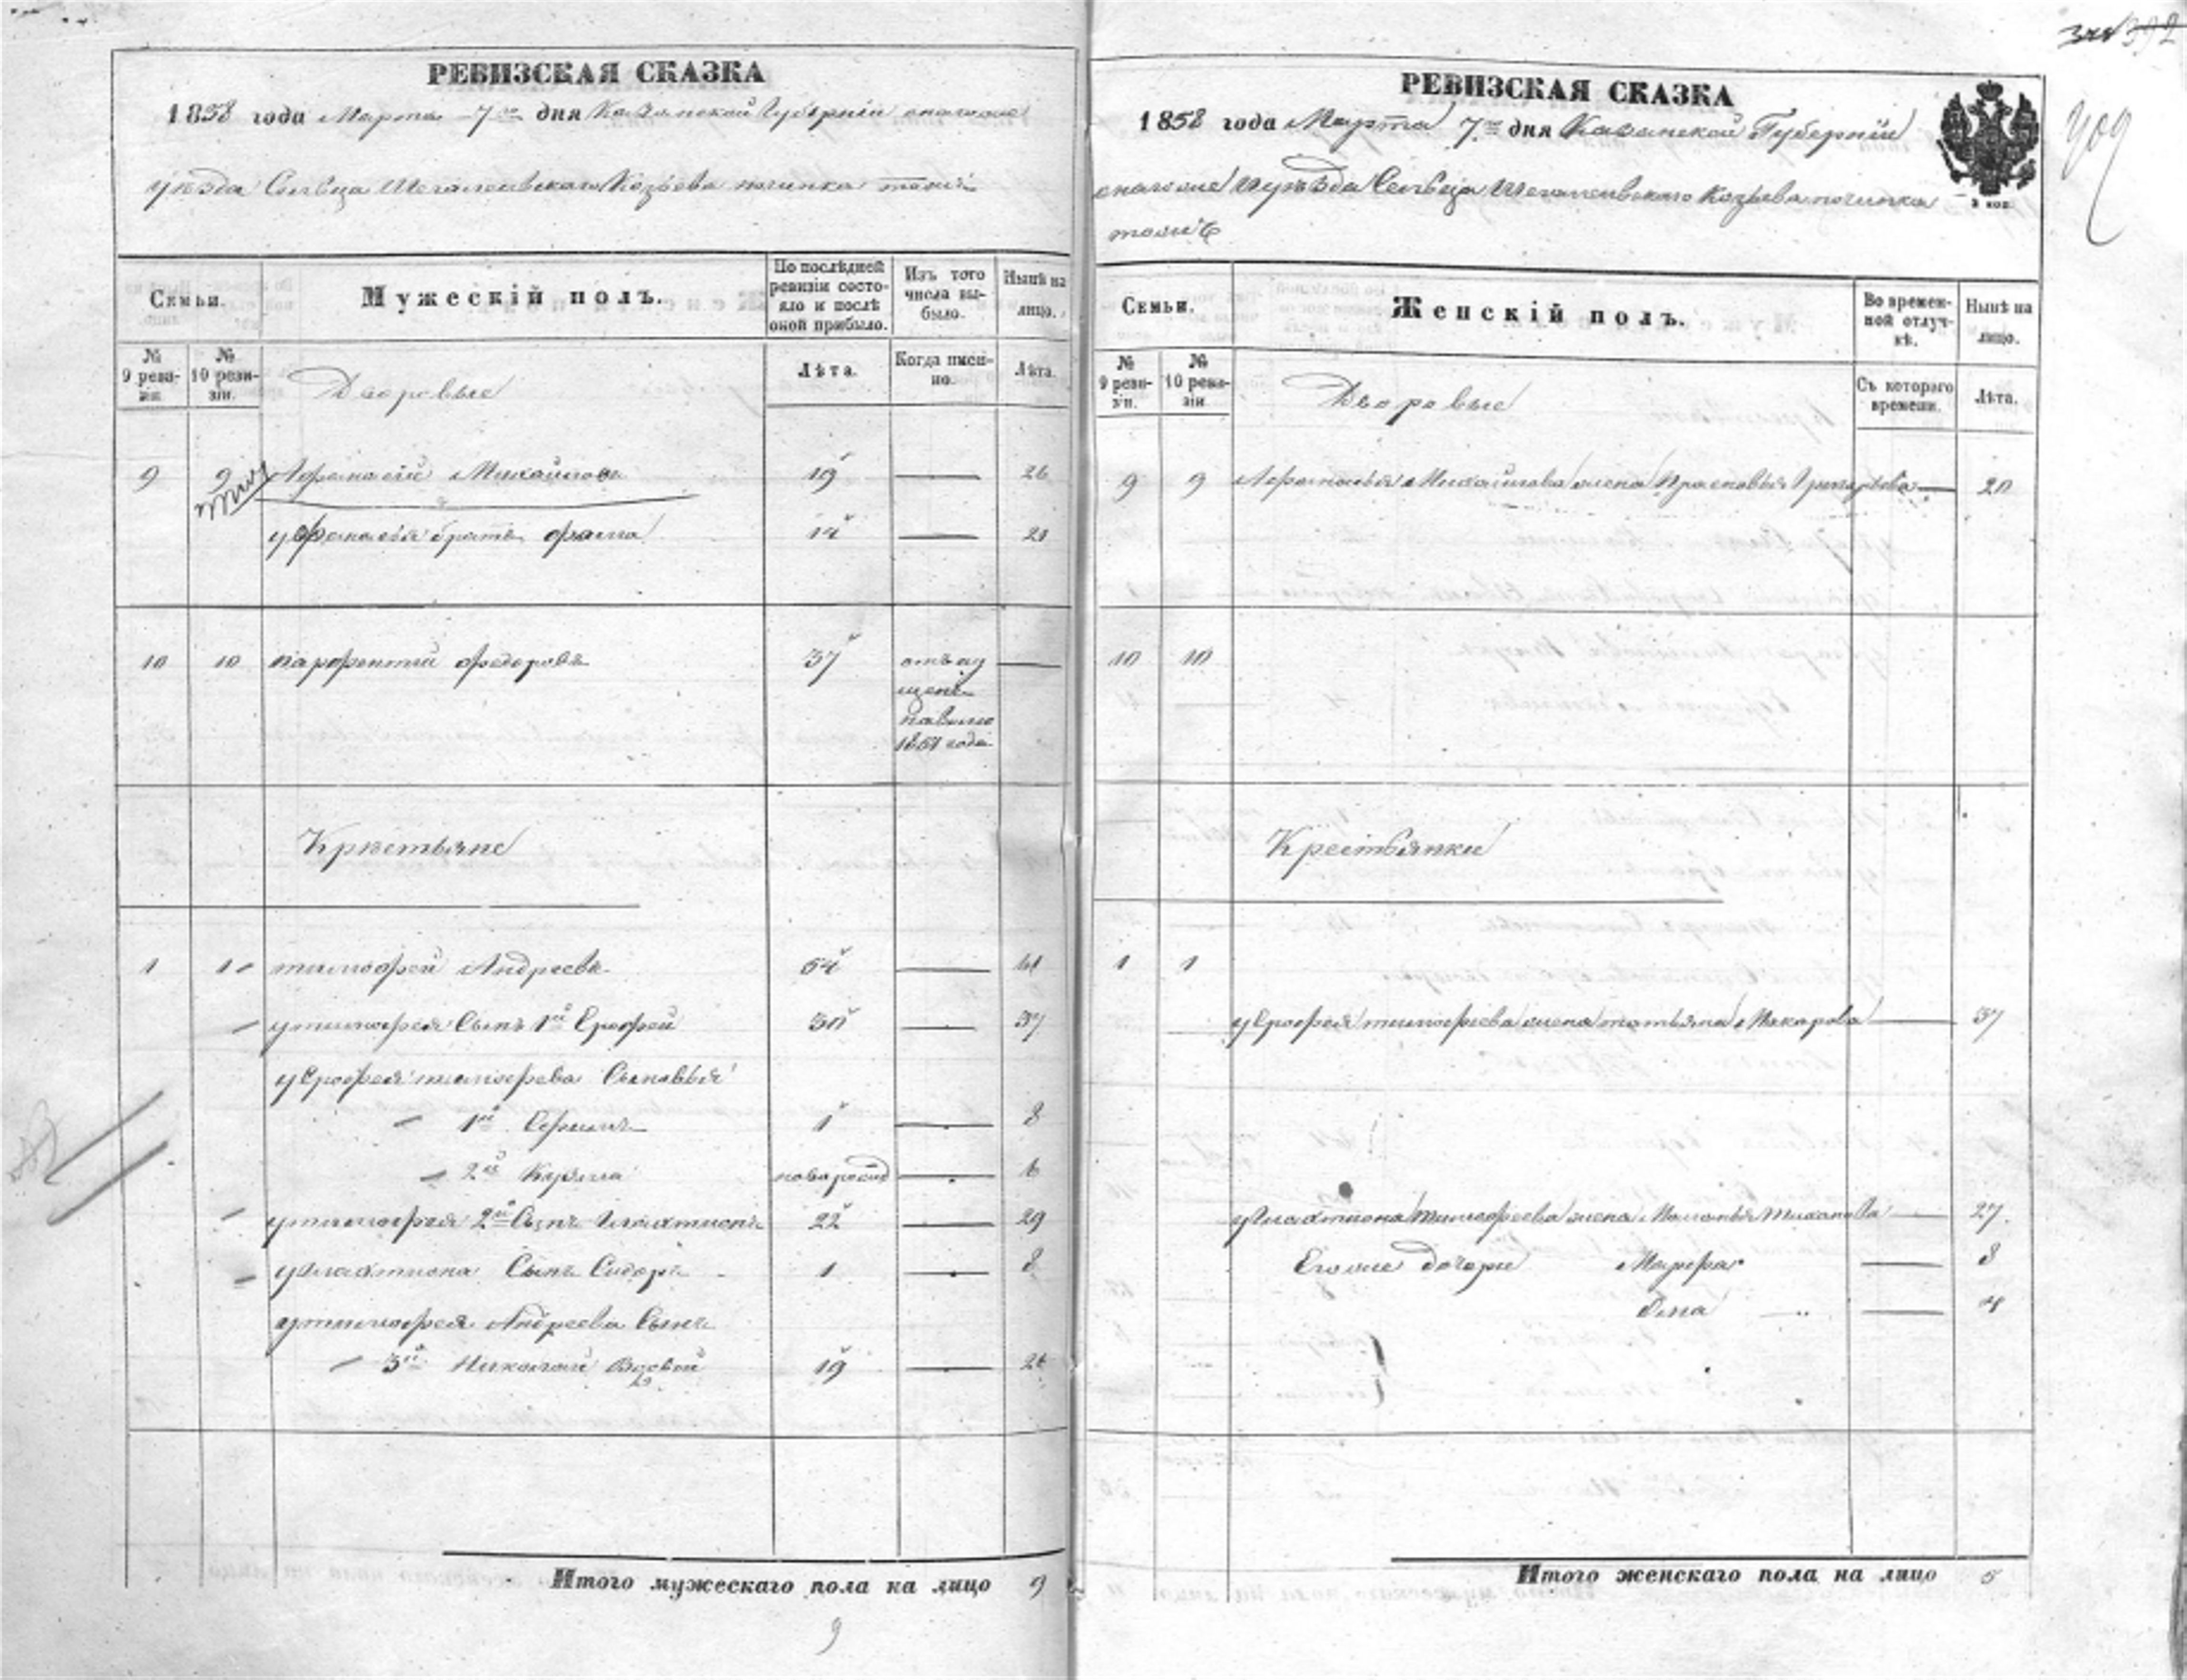 392
РЕВИЗСКАЯ СКАЗКА
1858 года Марта 7го дня Казанской Губерніи
уѣзда Сельца Козьева починка тожъ
Семьи.
Мужескій полъ.
По послѣдней ревизіи состояло и послѣ оной прибыло.
Изъ того числа выбыло.
Нынѣ на лицо.
№ 9 ревизіи.
№ 10 ревизіи.
Дворовые
Лѣта.
Когда именно.
Лѣта.
9 9 Афанасій Михайловъ 19 — 26
у Афанасья братъ Фома 14 — 21
10 10 Парфентій Федоровъ 37 —
1851 года
Крестьяне
1 1 Тимофей Андреевъ 54 — 61
у Тимофея Сынъ 1й Ерофей 30 — 37
у Ерофея Тимофеева Сыновья
1й 1 — 8
2й Кузма новорожд — 6
у Тимофея 2й Сынъ Галахтионъ 22 — 29
у Галахтиона Сынъ Сидоръ 1 — 8
у Тимофея Андреева Сынъ
3й Николай 19 — 26
Итого мужескаго пола на лицо 9
9
РЕВИЗСКАЯ СКАЗКА
409
1858 года Марта 7го дня Казанской Губерніи
уѣзда Сельца Козьева починка
тожъ
2 коп.
Семьи.
Женскій полъ.
Во временной отлучкѣ.
Нынѣ на лицо.
№ 9 ревизіи.
№ 10 ревизіи
Дворовые
Съ котораго времени.
Лѣта.
9 9 Афанасья Михайлова жена Прасковья Григорьева — 20
10 10
Крестьянки
1 1
у Ерофея Тимофеева жена Татьяна Макарова — 37
у Галахтиона Тимофеева жена Маланья — 27
Его же дочери Марфа — 8
— 4
Итого женскаго пола на лицо 5